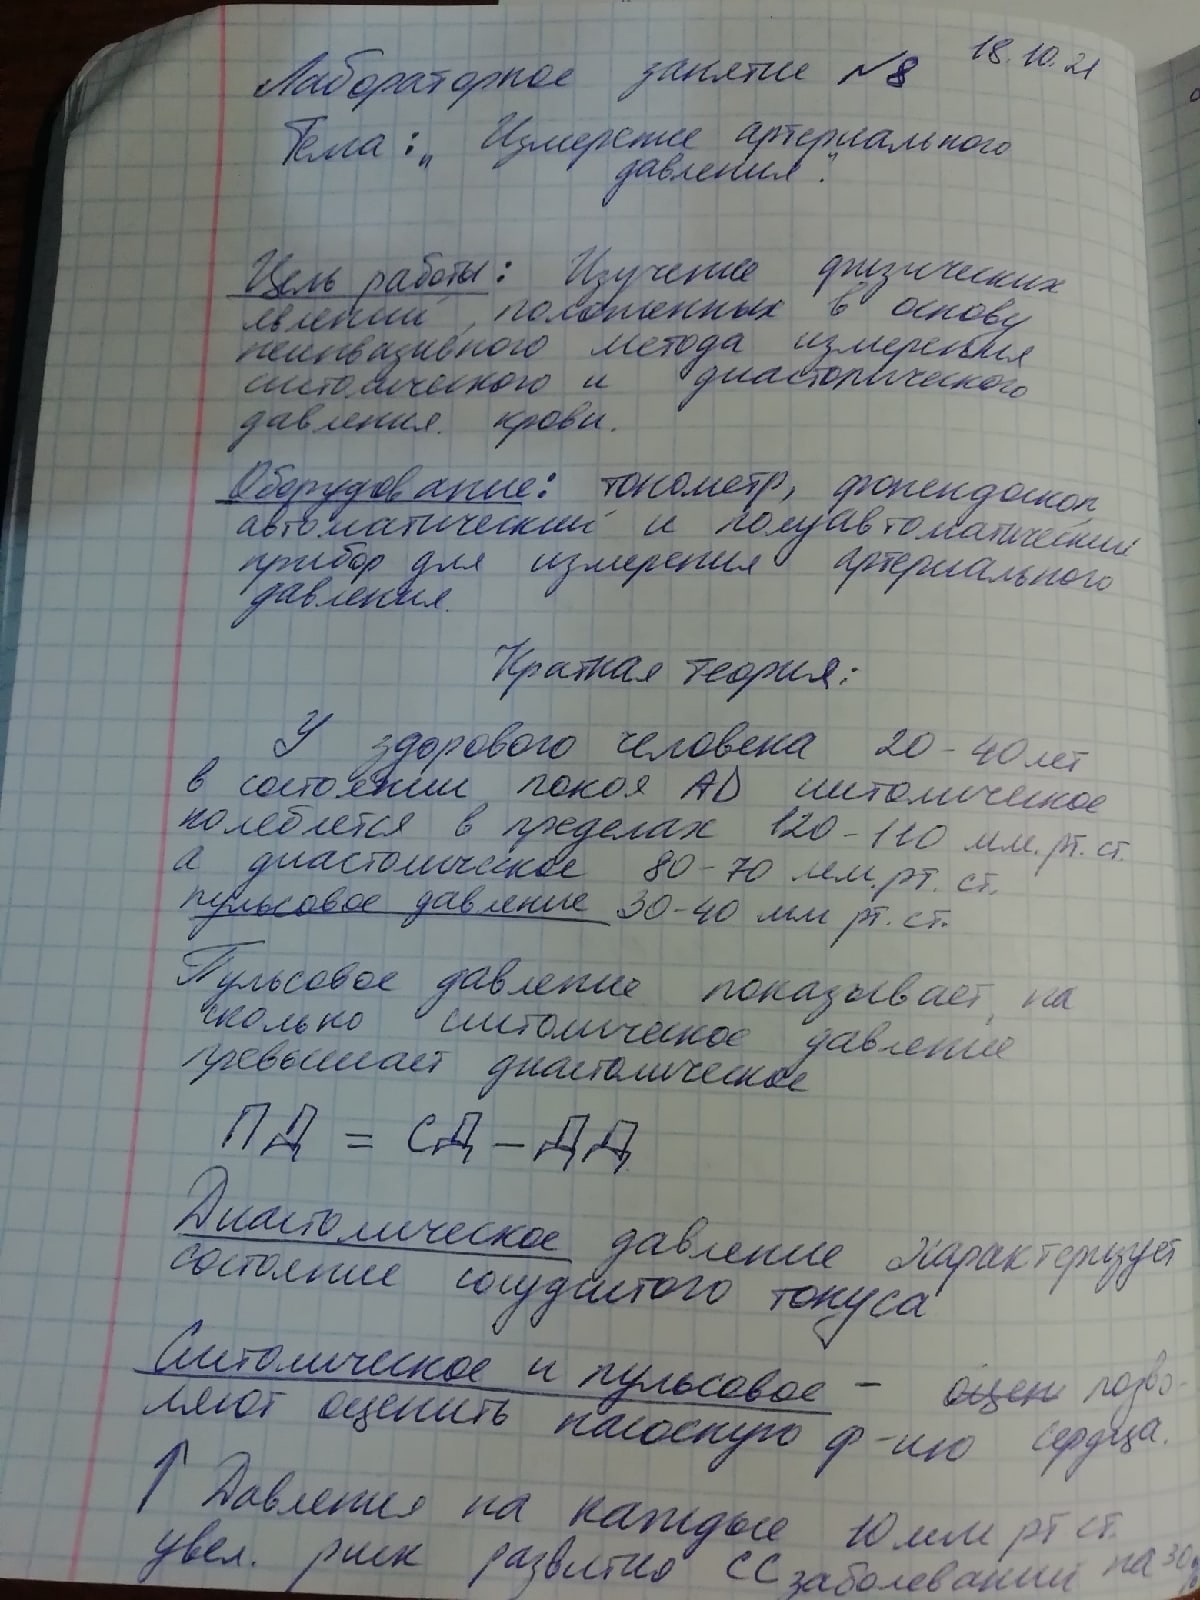 18.10.21
Лабораторное занятие №8
Тема: „Измерение артериального
давления".
Цель работы: Изучение физических
явлений, положенных в основу
неинвазивного метода измерения
систолического и диастолического
давления крови.
Оборудование: тонометр, фонендоскоп
автоматический и полуавтоматический
прибор для измерения артериального
давления.
Краткая теория:
У здорового человека 20-40 лет
в состоянии покоя АD систолическое
колеблется в пределах 120-110 мм.рт.ст.
а диастолическое 80-70 мм.рт.ст.
пульсовое давление 30-40 мм рт.ст.
Пульсовое давление показывает, на
сколько систолическое давление
превышает диастолическое
ПД = СД - ДД
Диастолическое давление характеризует
состояние сосудистого тонуса
Систолическое и пульсовое - оцен позво-
ляют оценить насосную ф-ию сердца.
↑ Давления на каждые 10 мм рт ст.
увел. риск развития СС заболеваний на 30%